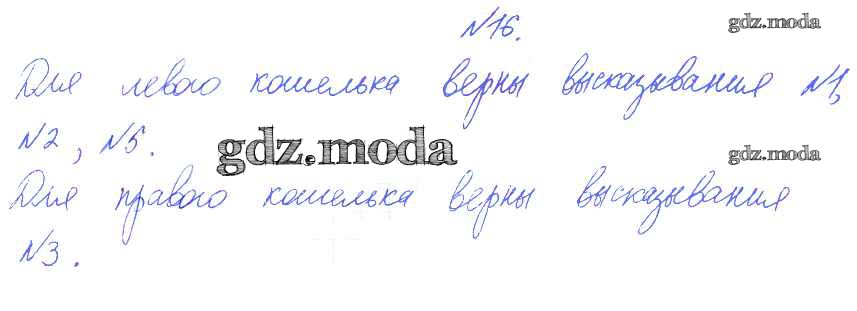 №16.
gdz.moda
Для левого кошелька верны высказывания №1,
№2, №5.
gdz.moda
gdz.moda
Для правого кошелька верны высказывания
№3.